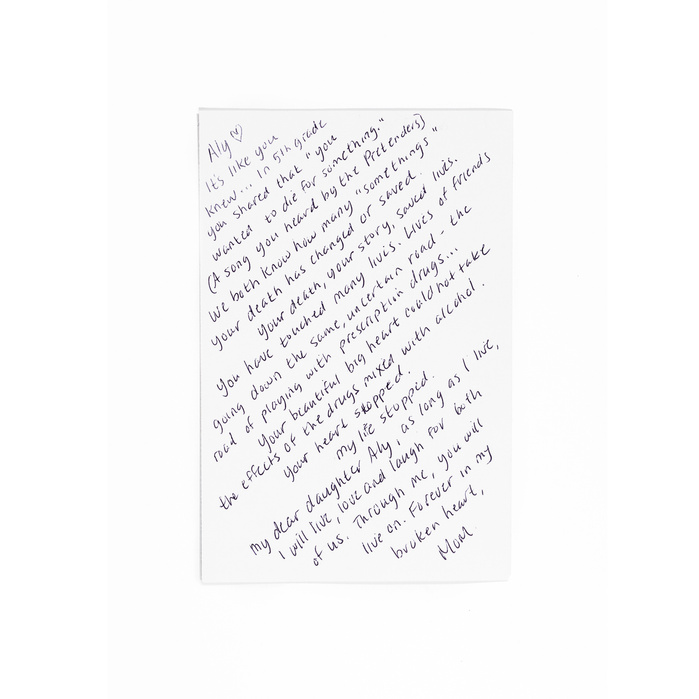 Aly ♡
It's like you
knew... In 5th grade
you shared that "you
wanted to die for something."
(A song you heard by the Pretenders)
We both know how many "somethings"
your death has changed or saved.
Your death, your story, saved lives.
You have touched many lives. Lives of friends
going down the same, uncertain road - the
road of playing with prescription drugs...
Your beautiful big heart could not take
the effects of the drugs mixed with alcohol.
Your heart stopped.
My life stopped.
My dear daughter Aly, as long as I live,
I will live, love and laugh for both
of us. Through me, you will
live on. Forever in my
broken heart,
Mom.